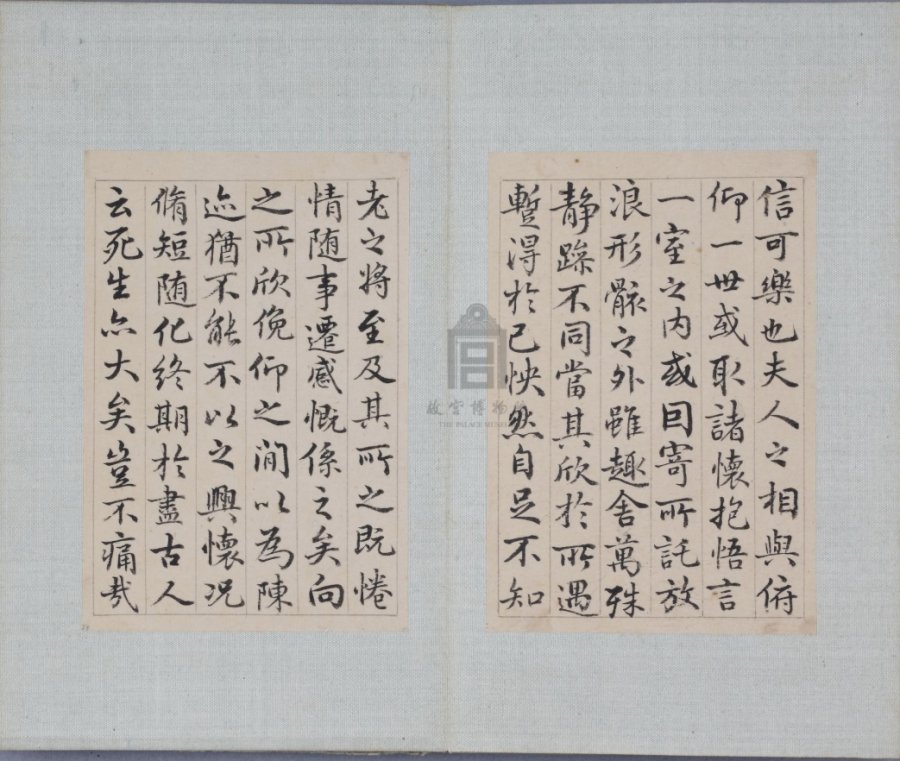 信可樂也夫人之相與俯
仰一世或取諸懷抱悟言
一室之内或因寄所託放
浪形骸之外雖趣舍萬殊
静躁不同當其欣於所遇
蹔得於己怏然自足不知
老之將至及其所之既惓
情随事遷感慨係之矣向
之所欣俛仰之間以為陳
迹猶不能不以之興懷况
脩短随化終期於盡古人
云死生亦大矣豈不痛哉
故宫博物院
THE PALACE MUSEUM